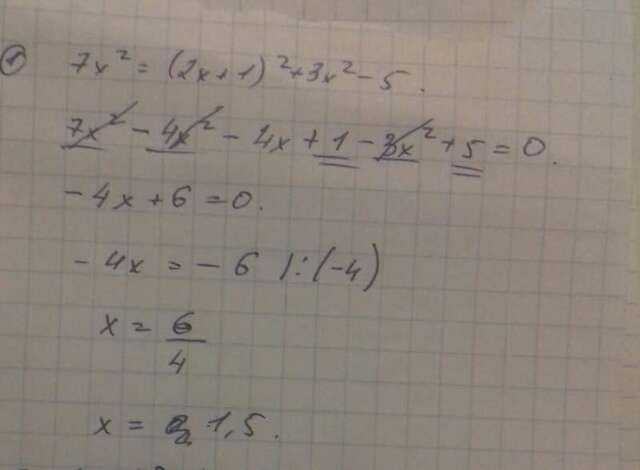 ① 7x² = (2x+1)²+3x²-5.
7x² - 4x² - 4x + 1 - 3x² + 5 = 0.
-4x+6=0.
-4x = -6 |:(-4)
x = 6/4
x = 1,5.